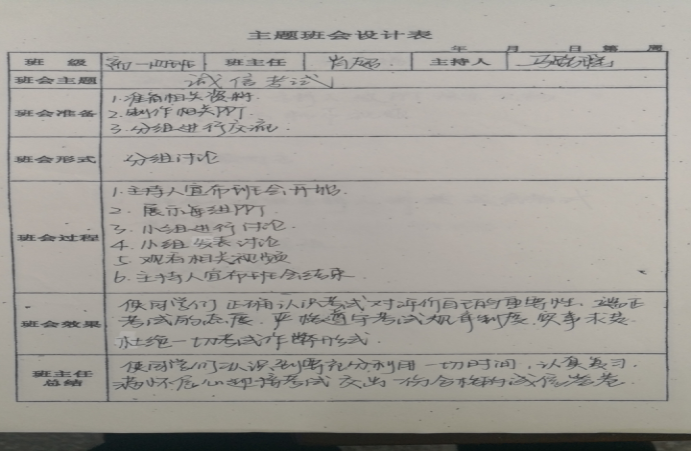 主题班会设计表
年 月 日 第 周
班 级 班主任 主持人
班会主题 诚信考试
班会准备 1.准备相关资料.
2.制作相关PPT
3.分组进行交流.
班会形式 分组讨论
班会过程 1.主持人宣布班会开始.
2. 展示每组PPT
3. 小组进行讨论.
4. 小组发表讨论
5. 观看相关视频
6. 主持人宣布班会结束
班会效果 使同学们正确认识考试对评价自己的重要性.端正
考试的态度.严格遵守考试规章制度.实事求是
杜绝一切考试作弊形式.
班主任总结 使同学们认识到要充分利用一切时间,认真复习.
满怀信心迎接考试交出一份合格的诚信答卷.